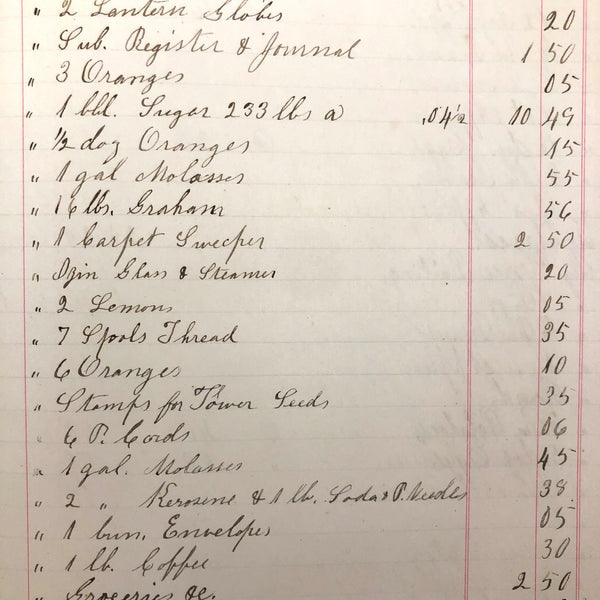 " 2 Lantern Globes 20
" Sub. Register & Journal 1 50
" 3 Oranges 05
" 1 bbl. Sugar 233 lbs a .04½ 10 49
" ½ doz Oranges 15
" 1 gal Molasses 55
" 16 lbs. Graham 56
" 1 Carpet Sweeper 2 50
" Glass & Steamer 20
" 2 Lemons 05
" 7 Spools Thread 35
" 6 Oranges 10
" Stamps for Flower Seeds 35
6 P. Cords 06
" 1 gal. Molasses 45
" 2 " Kerosene & 1 lb. Soda & P. Needles 38
" 1 bun. Envelopes 05
" 1 lb. Coffee 30
" Groceries &c. 2 50